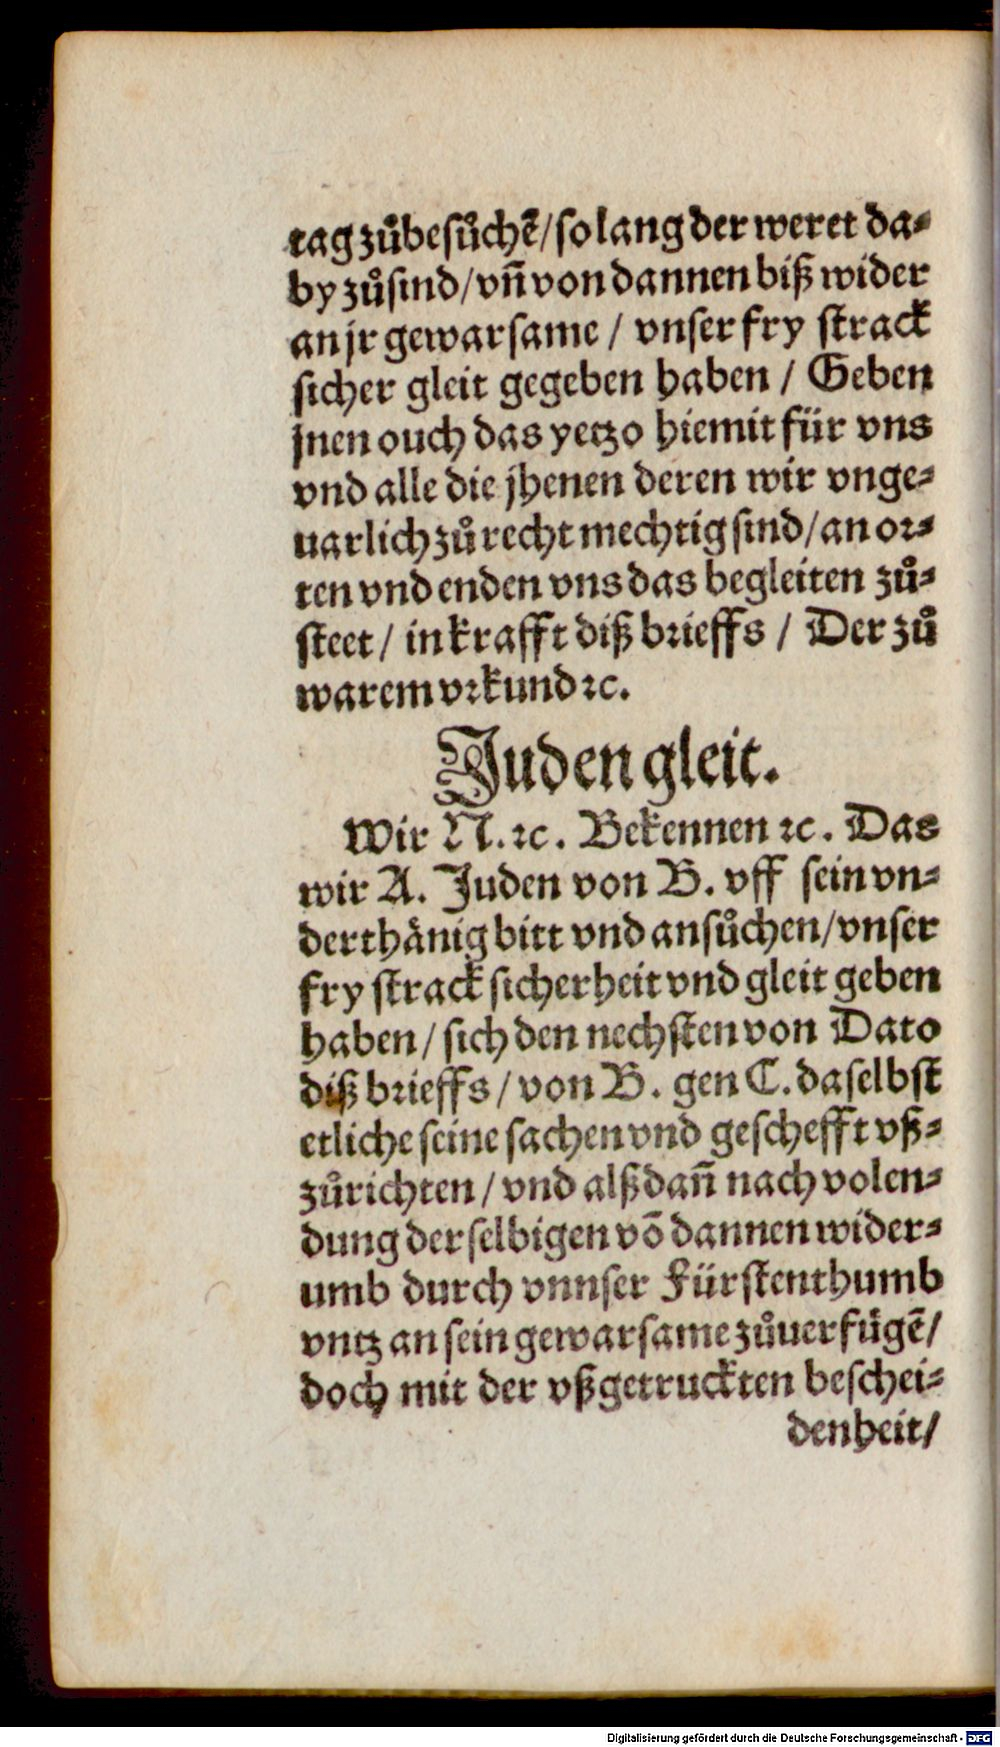 tag zů besůchē/ so lang der weret da⸗
by zů sind/ vn̄ von dannen biß wider
an jr gewarsame / vnser fry strack
sicher gleit gegeben haben / Geben
jnen ouch das yetzo hiemit für vns
vnd alle die jhenen deren wir vnge⸗
uarlich zů recht mechtig sind/ an or⸗
ten vnd enden vns das begleiten zů⸗
steet/ in krafft diß brieffs / Der zů
warem vrkund ꝛc.
Juden gleit.
Wir N. ꝛc. Bekennen ꝛc. Das
wir A. Juden von B. vff sein vn⸗
derthänig bitt vnd ansůchen/ vnser
fry strack sicherheit vnd gleit geben
haben/ sich den nechsten von Dato
diß brieffs/ von B. gen C. daselbst
etliche seine sachen vnd geschefft vß⸗
zůrichten/ vnd alßdan̄ nach volen⸗
dung derselbigen vō dannen wider⸗
umb durch vnnser Fürstenthumb
vntz an sein gewarsame zůuerfügē/
doch mit der vßgetruckten beschei⸗
denheit/
Digitalisierung gefördert durch die Deutsche Forschungsgemeinschaft - DFG